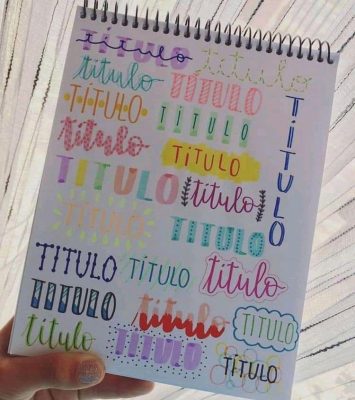 TITULO
titulo
titulo
titulo
TITULO
TITULO
TITULO
TITULO
titulo
TITULO
TITULO
titulo
TITULO
TITULO
TITULO
TITULO
titulo
TITULO
titulo
TITULO
titulo
TITULO
TITULO